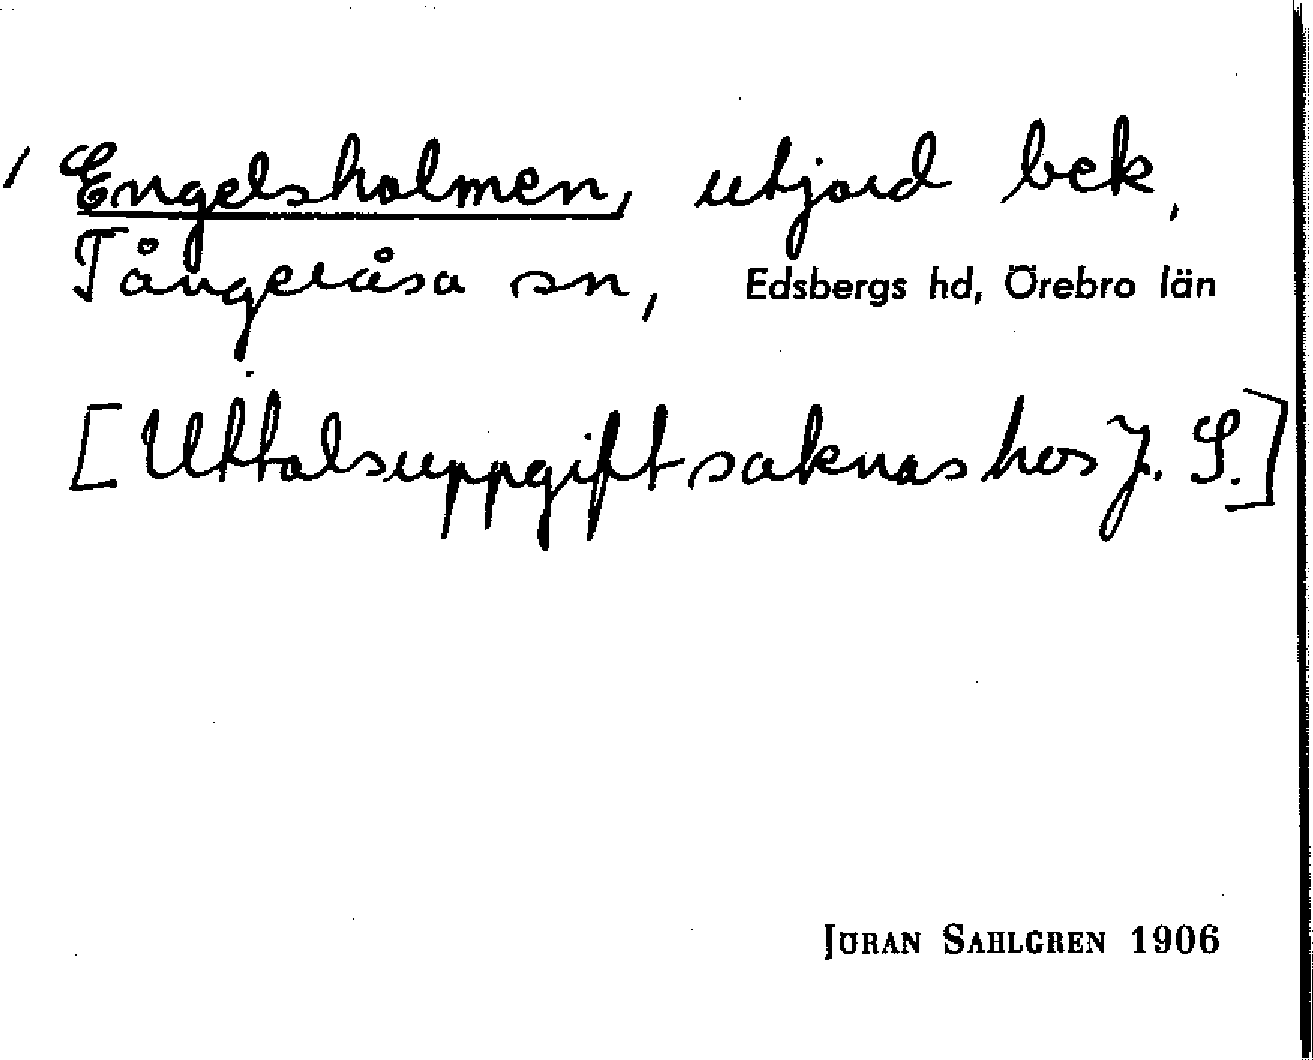 / Engelsholmen, utjord bek,
Tångeråsa sn, Edsbergs hd, Örebro län
[Uttalsuppgift saknas hos J. S.]
JÖRAN SAHLGREN 1906